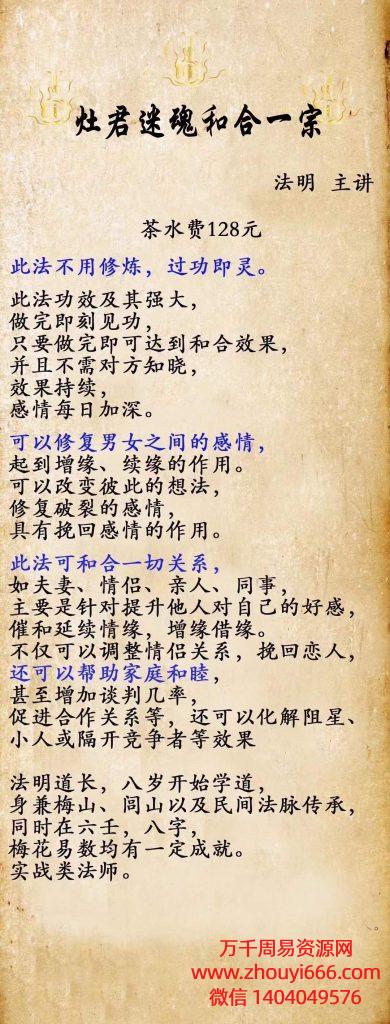 灶君迷魂和合一宗
法明 主讲
茶水费128元
此法不用修炼，过功即灵。
此法功效及其强大，
做完即刻见功，
只要做完即可达到和合效果，
并且不需对方知晓，
效果持续，
感情每日加深。
可以修复男女之间的感情，
起到增缘、续缘的作用。
可以改变彼此的想法，
修复破裂的感情，
具有挽回感情的作用。
此法可和合一切关系，
如夫妻、情侣、亲人、同事，
主要是针对提升他人对自己的好感，
催和延续情缘，增缘借缘。
不仅可以调整情侣关系，挽回恋人，
还可以帮助家庭和睦，
甚至增加谈判几率，
促进合作关系等，还可以化解阻星、
小人或隔开竞争者等效果
法明道长，八岁开始学道，
身兼梅山、闾山以及民间法脉传承，
同时在六壬，八字，
梅花易数均有一定成就。
实战类法师。
。
万千周易资源网
www.zhouyi666.com
微信 1404049576